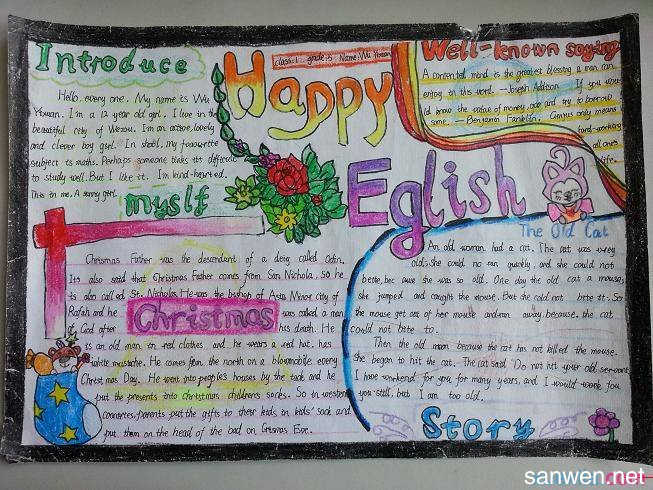 Introduce
Hello, every one. My name is Wu
Yowan. I'm a 12 year old girl. I live in the
beautiful city of I'm an active, lovely
and clever boy girl. In shool, my favourite
subject is maths. Perhaps someone thinks its difficult
to study well. But I like it. I'm kind-hearted.
This is me. A sunny girl.
myslf
class:1 grade:5 Name:Wu Yowan
Happy
Eglish
Well-known saying
A contented mind is the greatest blessing a man can
enjoy in this word. —Joseph Addison If you
ld know the value of money, go and try to borrow
some. — Benjamin Franklin. Genius only means
hard-working
all one's
life.
Christmas Father was the descendant of a deng called Odin.
It's also said that Christmas Father comes from San Nichola, so he
is also called St. Nicholas. He was the bishop of Asia Minor city of
and he was called a man
of God after his death. He
Christmas
is an old man in red clothes and he wears a red hat, has
white mustache. He comes from the north on a every
Christmas Day. He went into people's houses by the and he
put the presents into christmas children's socks. So in western
parents put the gifts to their kids in kids' sock and
put them on the head of the bed on Eve.
The Old Cat
An old woman had a cat. The cat was very
old. She could no run quickly, and she could not
bite, bec awe she was so old. One day the old cat a mouse;
she jumped and caught the mouse. But she cold not bite it. So
the mouse get out of her mouse and ran away because the cat
could not bite to.
Then the old man because the cat has not killed the mouse.
She began to hit the cat. The cat said Do not hit your old servant
I have worked for you for many years, and I would work for
you still, but I am too old.
Story
sanwen.net